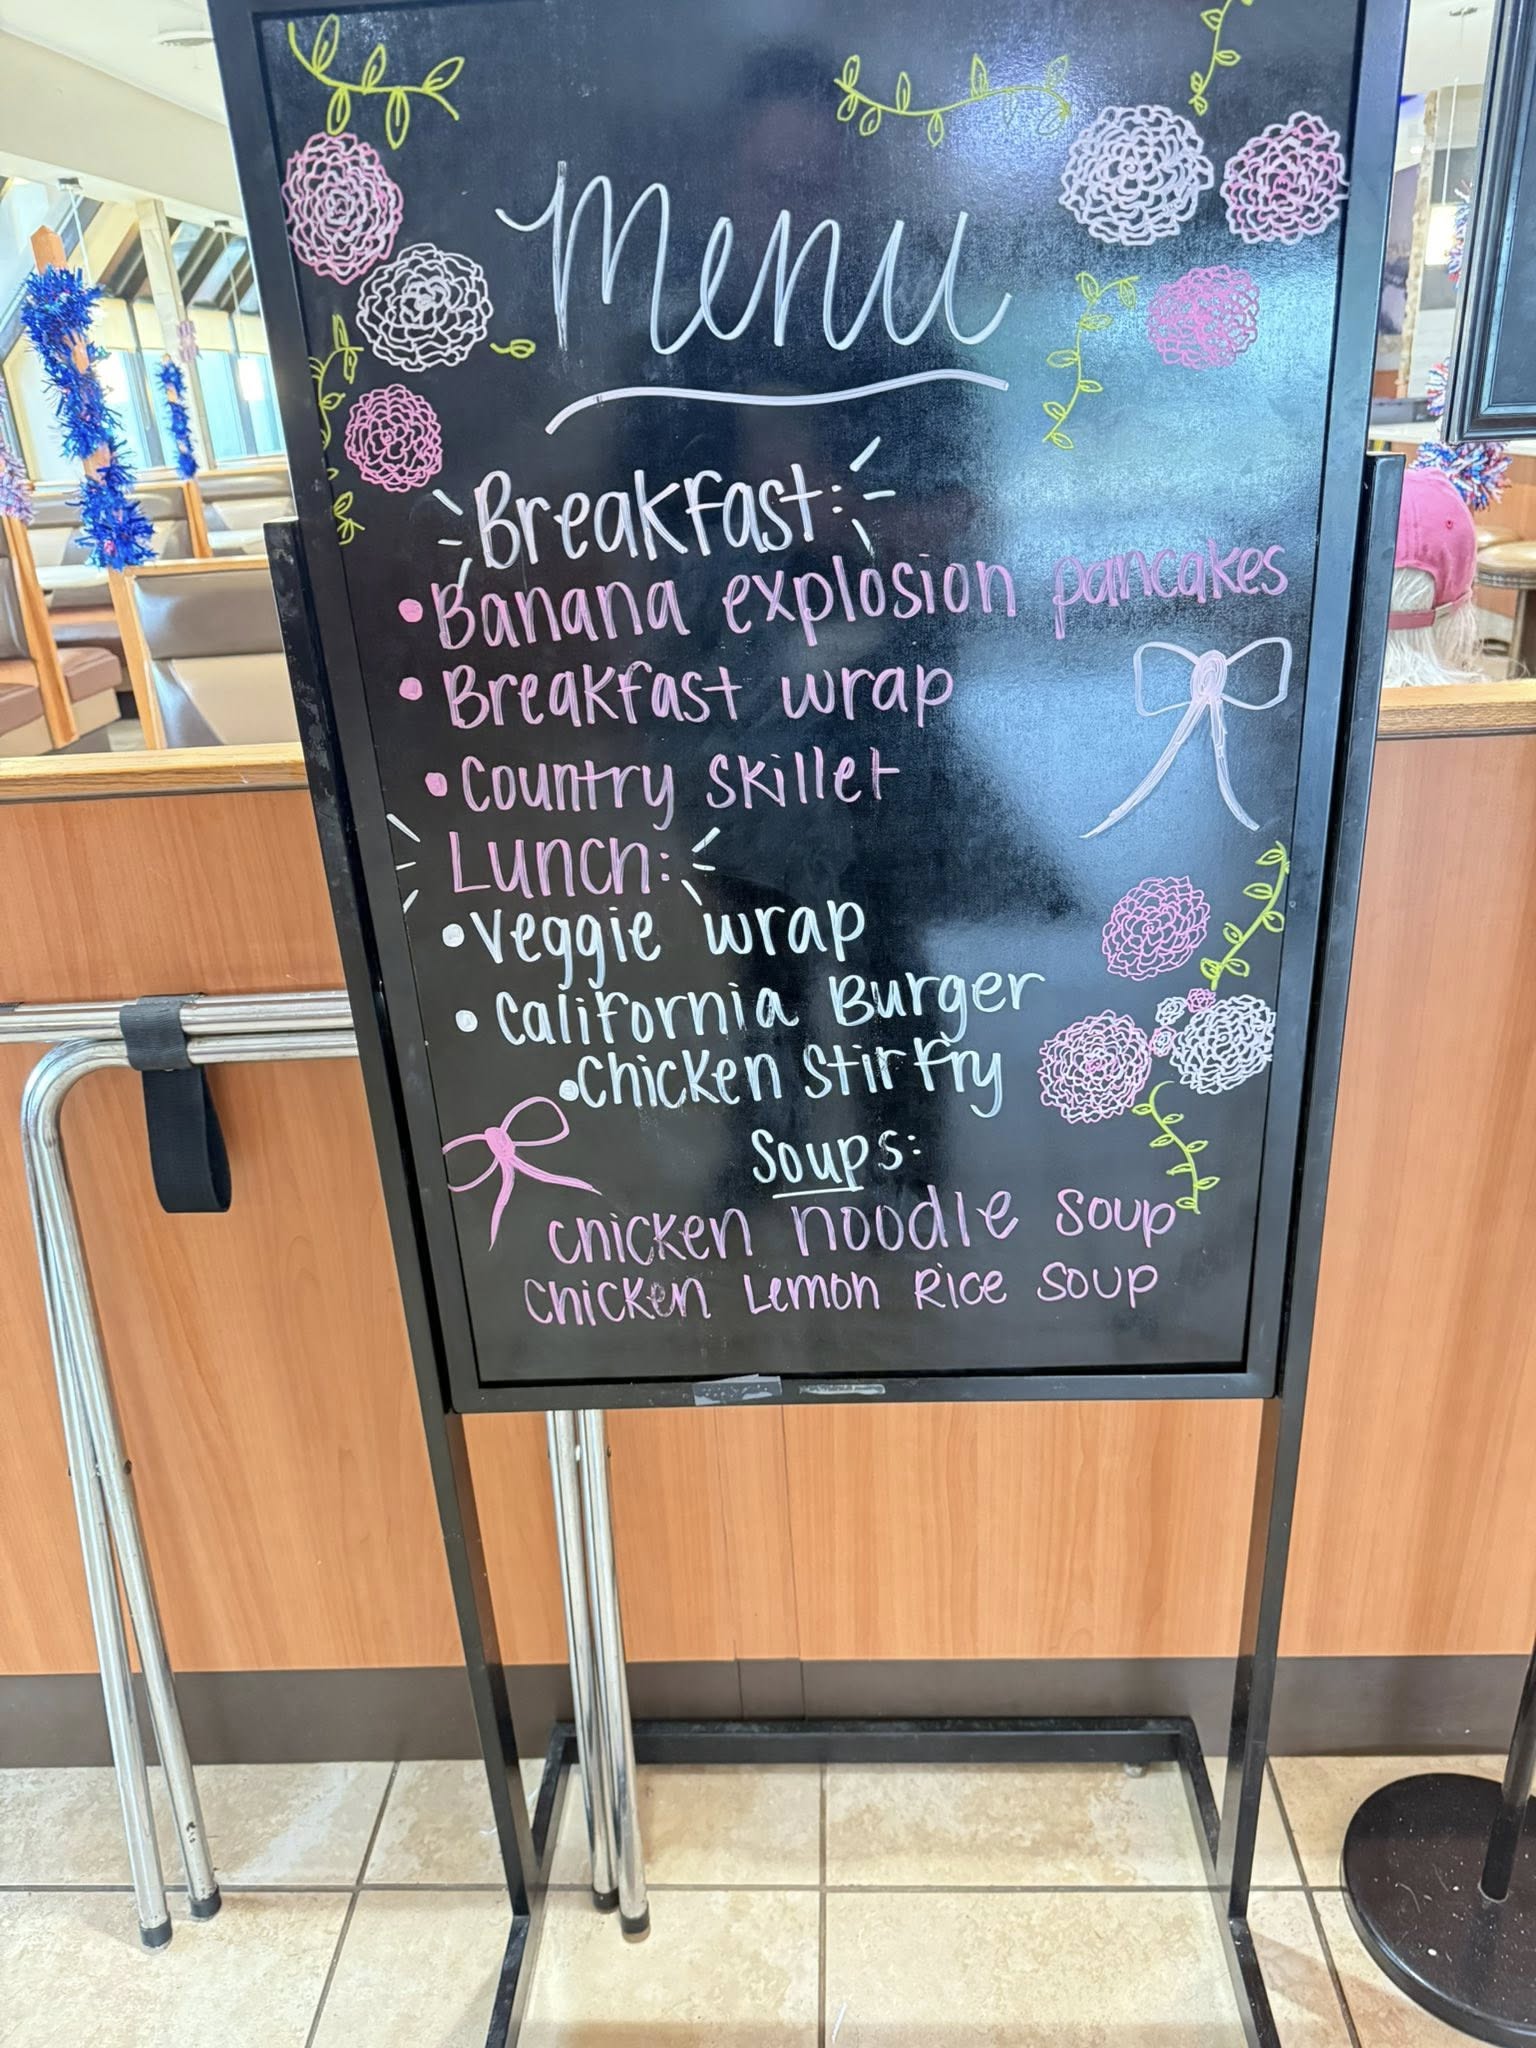 Menu
Breakfast:
• Banana explosion pancakes
• Breakfast wrap
• Country Skillet
Lunch:
• Veggie wrap
• California Burger
• Chicken Stir Fry
Soups:
Chicken noodle soup
Chicken Lemon Rice Soup